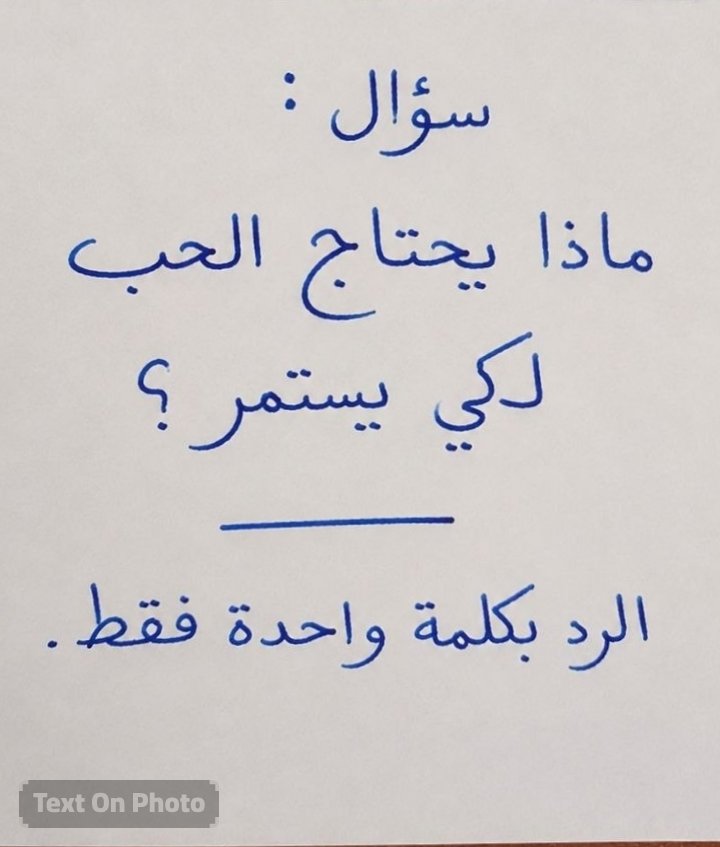 سؤال :
ماذا يحتاج الحب
لكي يستمر ؟
الرد بكلمة واحدة فقط.
Text On Photo